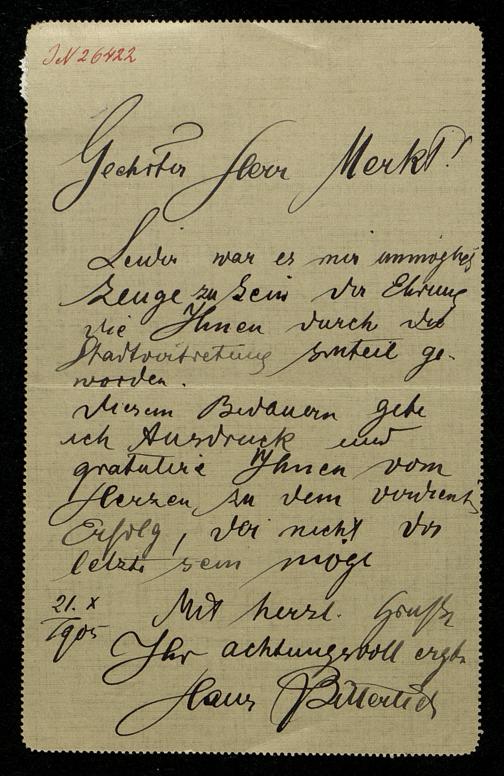 IN 26422
Geehrter Herr Merkt!
Leider war es mir unmöglich
Zeuge zu sein der Ehrung
die Ihnen durch die
Stadtvertretung zuteil ge-
worden.
Diesem Bedauern gebe
ich Ausdruck und
gratulire Ihnen vom
Herzen zu dem verdienten
Erfolg, der nicht der
letzte sein möge
21. X
1905
Mit herzl. Gruße
Ihr achtungsvoll ergb.
Hans Bitterlich